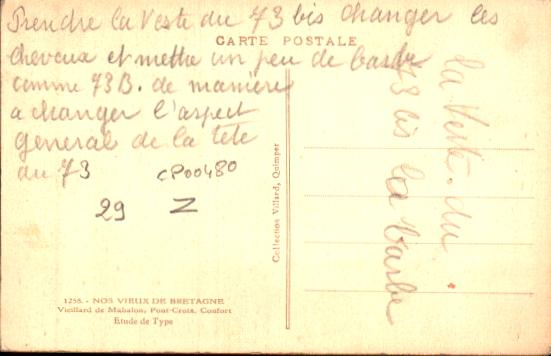 Prendre la veste du 73 bis changer les
CARTE POSTALE
cheveux et mettre un peu de barbe
comme 73B. de manière
a changer l'aspect
general de la tete
du 73
CP00480
29 Z
la veste du
73 bis la barbe
Collection Villard, Quimper
1258. - NOS VIEUX DE BRETAGNE
Vieillard de Mahalon, Pont-Croix, Confort
Etude de Type